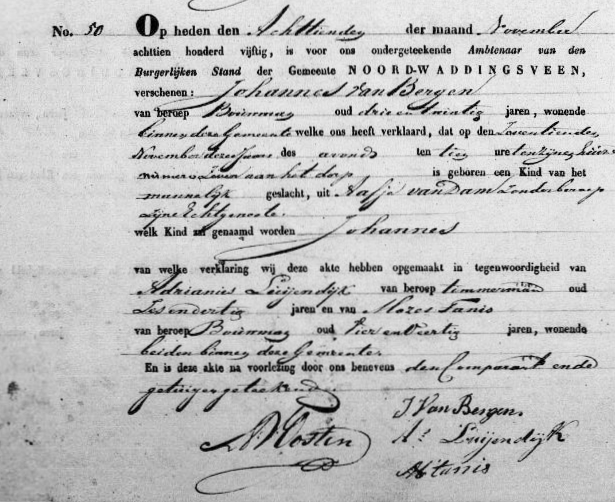 No. 50 Op heden den Achttienden der maand November
achttien honderd vijftig, is voor ons ondergeteekende Ambtenaar van den
Burgerlijken Stand der Gemeente NOORD-WADDINGSVEEN,
verschenen: Johannes van Bergen
van beroep Bouwman oud drie en twintig jaren, wonende
binnen deze Gemeente welke ons heeft verklaard, dat op den Zeventienden
November dezes Jaars des avonds ten tien ure ten zijnen huize
aan het dorp is geboren een Kind van het
mannelijk geslacht, uit Aafje van Dam zonder beroep
zijne Echtgenoote
welk Kind zal genaamd worden Johannes
van welke verklaring wij deze akte hebben opgemaakt in tegenwoordigheid van
Adrianus Luijendijk van beroep timmerman oud
Zes en dertig jaren en van Mozes Tanis
van beroep Bouwman oud Vier en Veertig jaren, wonende
beiden binnen deze Gemeente
En is deze akte na voorlezing door ons benevens den Comparant en de
getuigen geteekend
J Van Bergen
As Luijendijk
M tanis